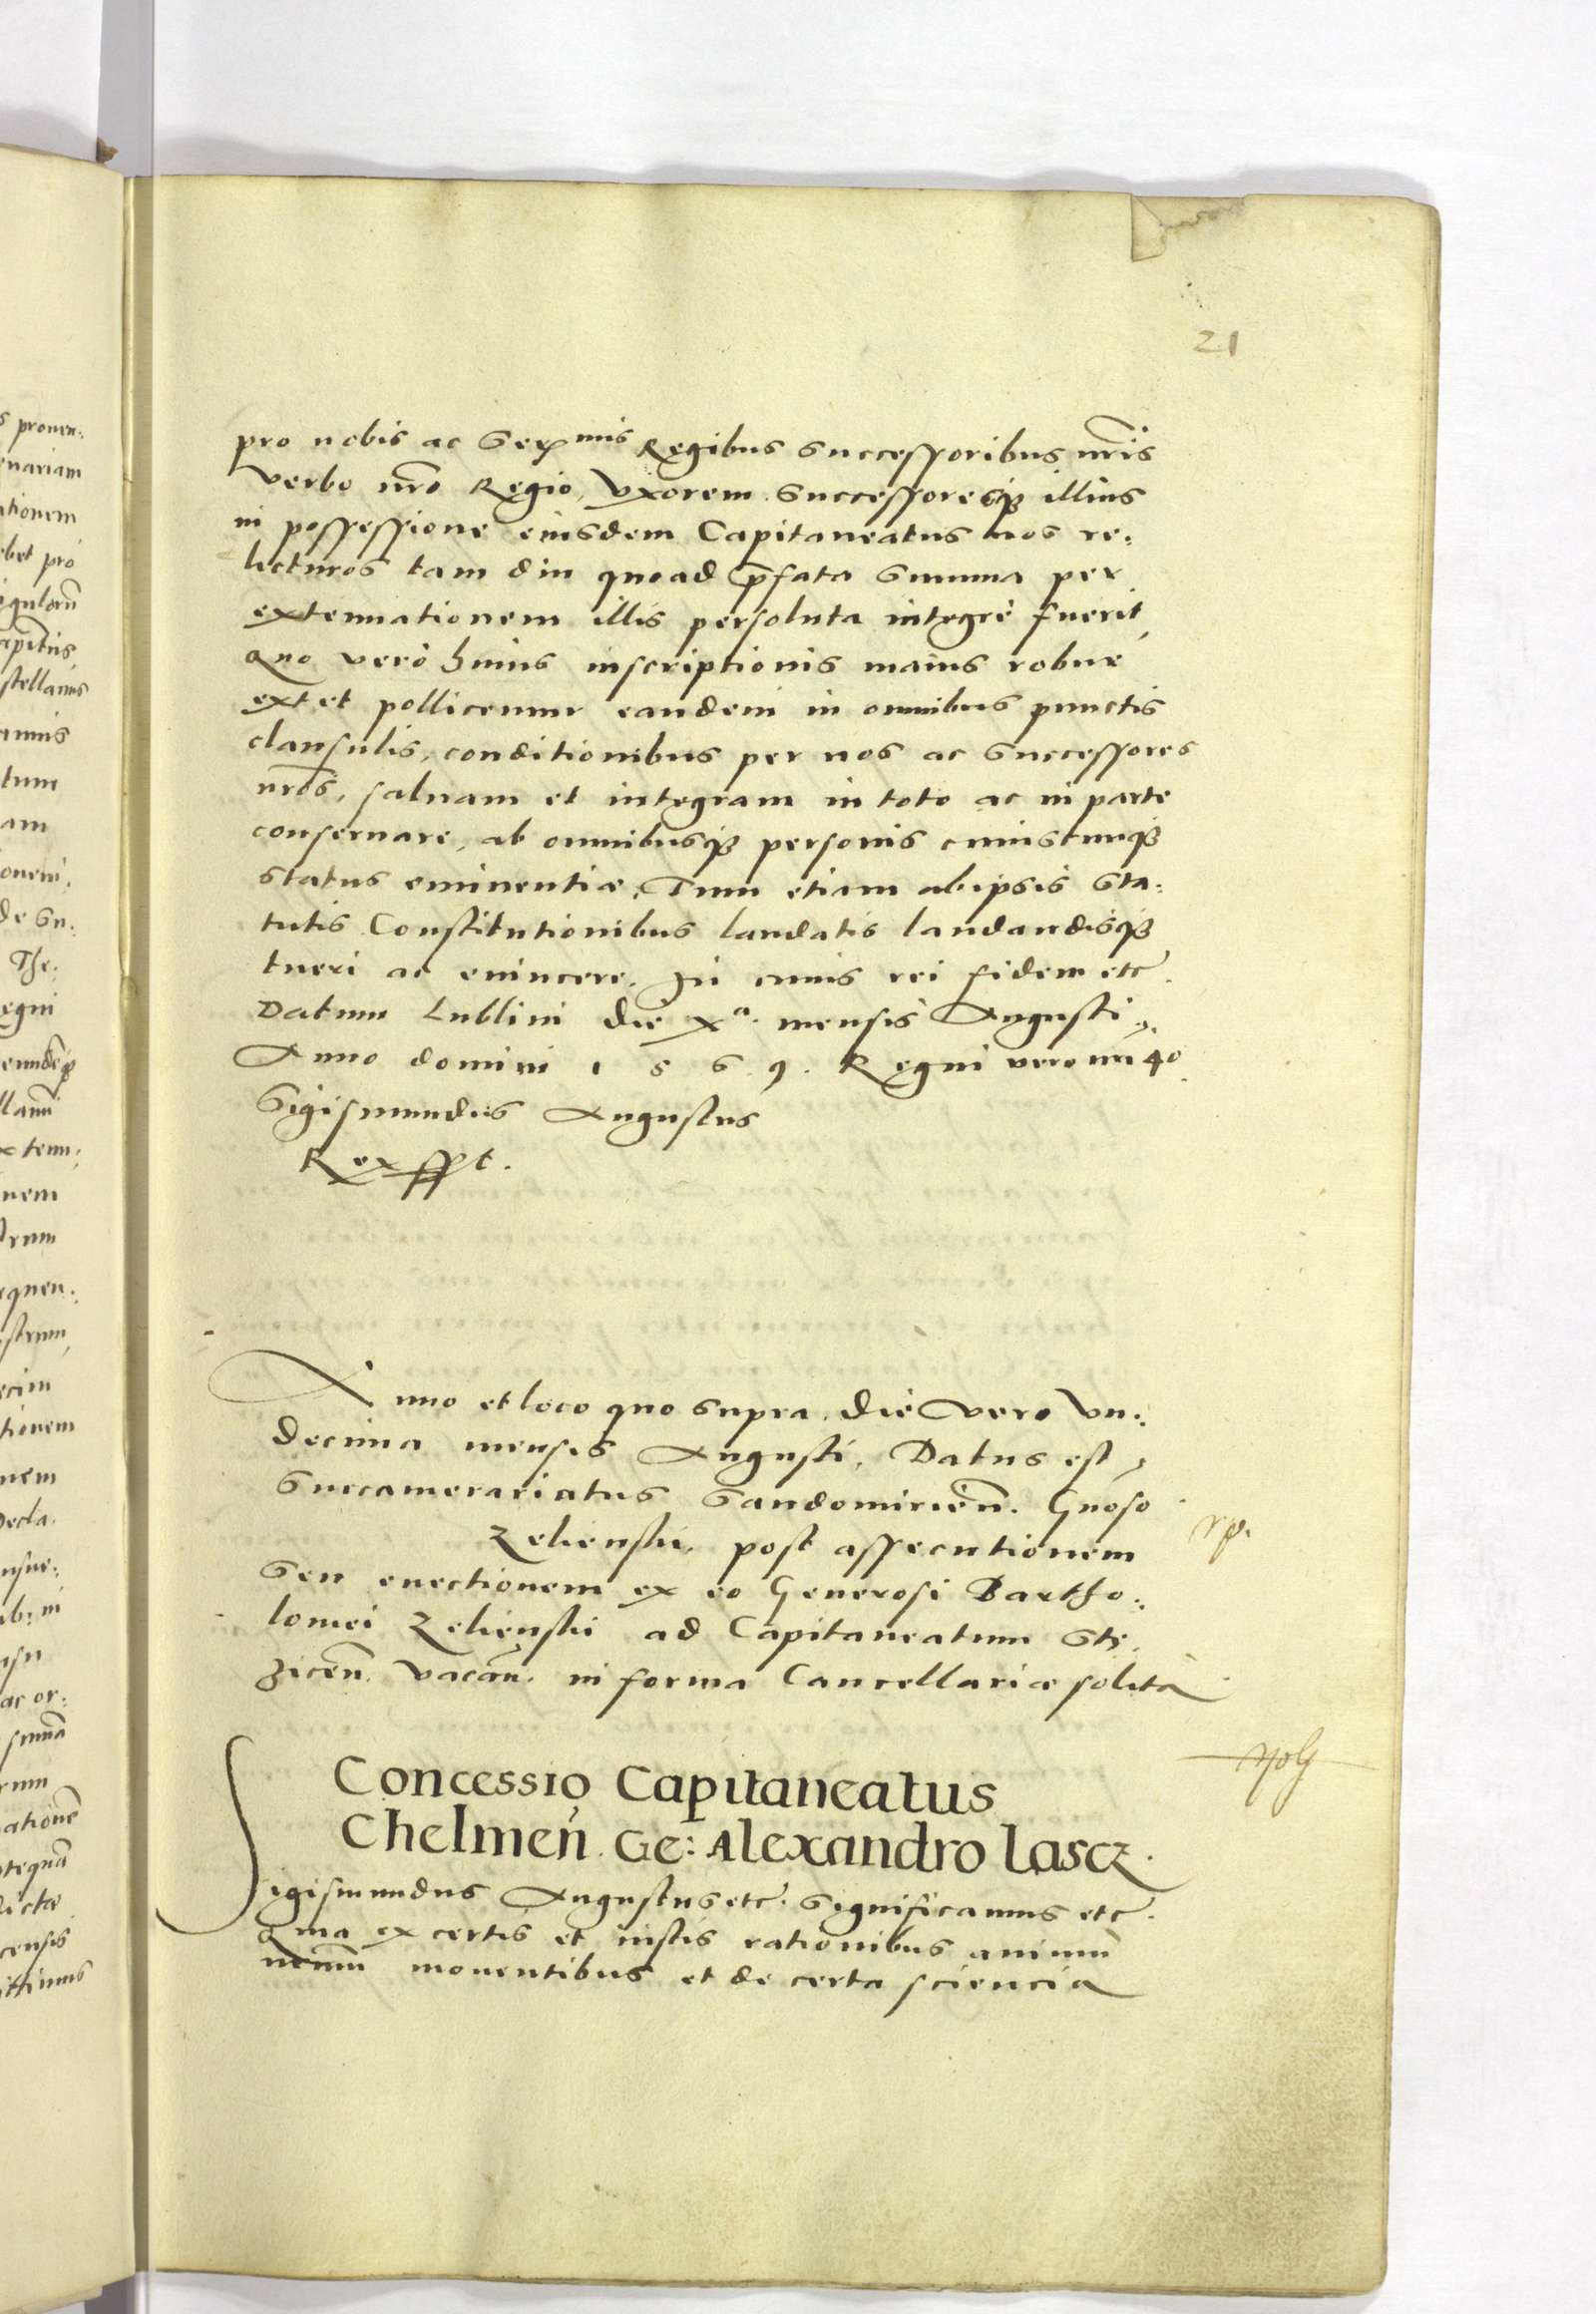 21
pro nobis ac Ser^mis Regibus Successoribus nr̃is
verbo nr̃o Regio, Vxorem Successoresq₃ illius
in possessione eiusdem Capitaneatus nos re:
licturos tam diu quoad p̃fata Summa per
extenuationem illis persoluta integrè fuerit,
Quo verò huius inscriptionis maius robur
extet pollicemur eandem in omnibus punctis
clausulis, conditionibus per nos ac Successores
nr̃os, saluam et integram in toto ac in parte
conseruare, ab omnibusq₃ personis cuiuscunq₃
status eminentiæ, Tum etiam ab ipsis Sta:
tutis Constitutionibus laudatis laudandisq₃
tueri ac euincere. In cuius rei fidem etc̃.
Datum Lublini die Xª. mensis Augusti,
Anno domini 1 5 6 9. Regni vero nr̃i 40
Sigismundus Augustus
Rex sspt.
Anno et loco quo supra, die vero Vn:
decima mensis Augusti, Datus est
Succamerariatus Sandomirień. Gnoso
Zelienski, post assecutionem
Seu euectionem ex eo Generosi Bartho:
lomei Zelienski ad Capitaneatum Stę
zicen̄. vacan̄. in forma Cancellariæ solita
Concessio Capitaneatus
Chelmen̄. Ge: Alexandro Lascz.
Sigismundus Augustus etc̃. Significamus etc̃.
Quia ex certis et iustis rationibus animū
nr̃um mouentibus et de certa sciencia